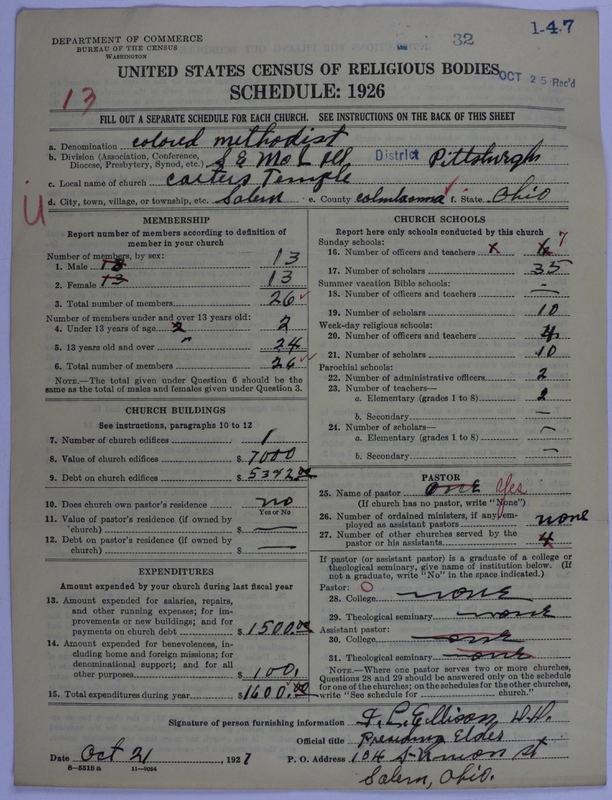 1-4-7
32
DEPARTMENT OF COMMERCE
BUREAU OF THE CENSUS
WASHINGTON
UNITED STATES CENSUS OF RELIGIOUS BODIES
OCT 25 Rec'd
SCHEDULE: 1926
13
FILL OUT A SEPARATE SCHEDULE FOR EACH CHURCH. SEE INSTRUCTIONS ON THE BACK OF THIS SHEET
a. Denomination colored methodist
b. Division (Association, Conference, Diocese, Presbytery, Synod, etc.) District Pittsburgh
c. Local name of church carters Temple
d. City, town, village, or township, etc. Salem e. County f. State Ohio
MEMBERSHIP
Report number of members according to definition of
member in your church
Number of members, by sex:
1. Male 13 13
2. Female 13 13
3. Total number of members 26
Number of members under and over 13 years old:
4. Under 13 years of age 2 2
5. 13 years old and over " 24
6. Total number of members 26
NOTE.—The total given under Question 6 should be the
same as the total of males and females given under Question 3.
CHURCH BUILDINGS
See instructions, paragraphs 10 to 12
7. Number of church edifices 1
8. Value of church edifices $ 7000
9. Debt on church edifices $ 5342.00
10. Does church own pastor's residence no
Yes or No
11. Value of pastor's residence (if owned by
church) $ —
12. Debt on pastor's residence (if owned by
church) $ —
EXPENDITURES
Amount expended by your church during last fiscal year
13. Amount expended for salaries, repairs,
and other running expenses; for im-
provements or new buildings; and for
payments on church debt $ 1500.00
14. Amount expended for benevolences, in-
cluding home and foreign missions; for
denominational support; and for all
other purposes $ 100.
15. Total expenditures during year $ 1600.00
CHURCH SCHOOLS
Report here only schools conducted by this church
Sunday schools:
16. Number of officers and teachers x 7
17. Number of scholars 35
Summer vacation Bible schools:
18. Number of officers and teachers —
19. Number of scholars 10
Week-day religious schools:
20. Number of officers and teachers 4
21. Number of scholars 10
Parochial schools:
22. Number of administrative officers 2
23. Number of teachers—
a. Elementary (grades 1 to 8) 2
b. Secondary —
24. Number of scholars—
a. Elementary (grades 1 to 8) —
b. Secondary —
PASTOR
25. Name of pastor one Yes
(If church has no pastor, write "None")
26. Number of ordained ministers, if any, em-
ployed as assistant pastors none
27. Number of other churches served by the
pastor or his assistants 4
If pastor (or assistant pastor) is a graduate of a college or
theological seminary, give name of institution below. (If
not a graduate, write "No" in the space indicated.)
Pastor: O
28. College none
29. Theological seminary none
Assistant pastor:
30. College none
31. Theological seminary none
NOTE.—Where one pastor serves two or more churches,
Questions 28 and 29 should be answered only on the schedule
for one of the churches; on the schedules for the other churches,
write "See schedule for church."
Signature of person furnishing information F. L. Ellison D.D.
Official title Presiding Elder
Date Oct 21, 1927 P. O. Address 104 S-Union st
8-5516 a 11-9054
Salem, Ohio.